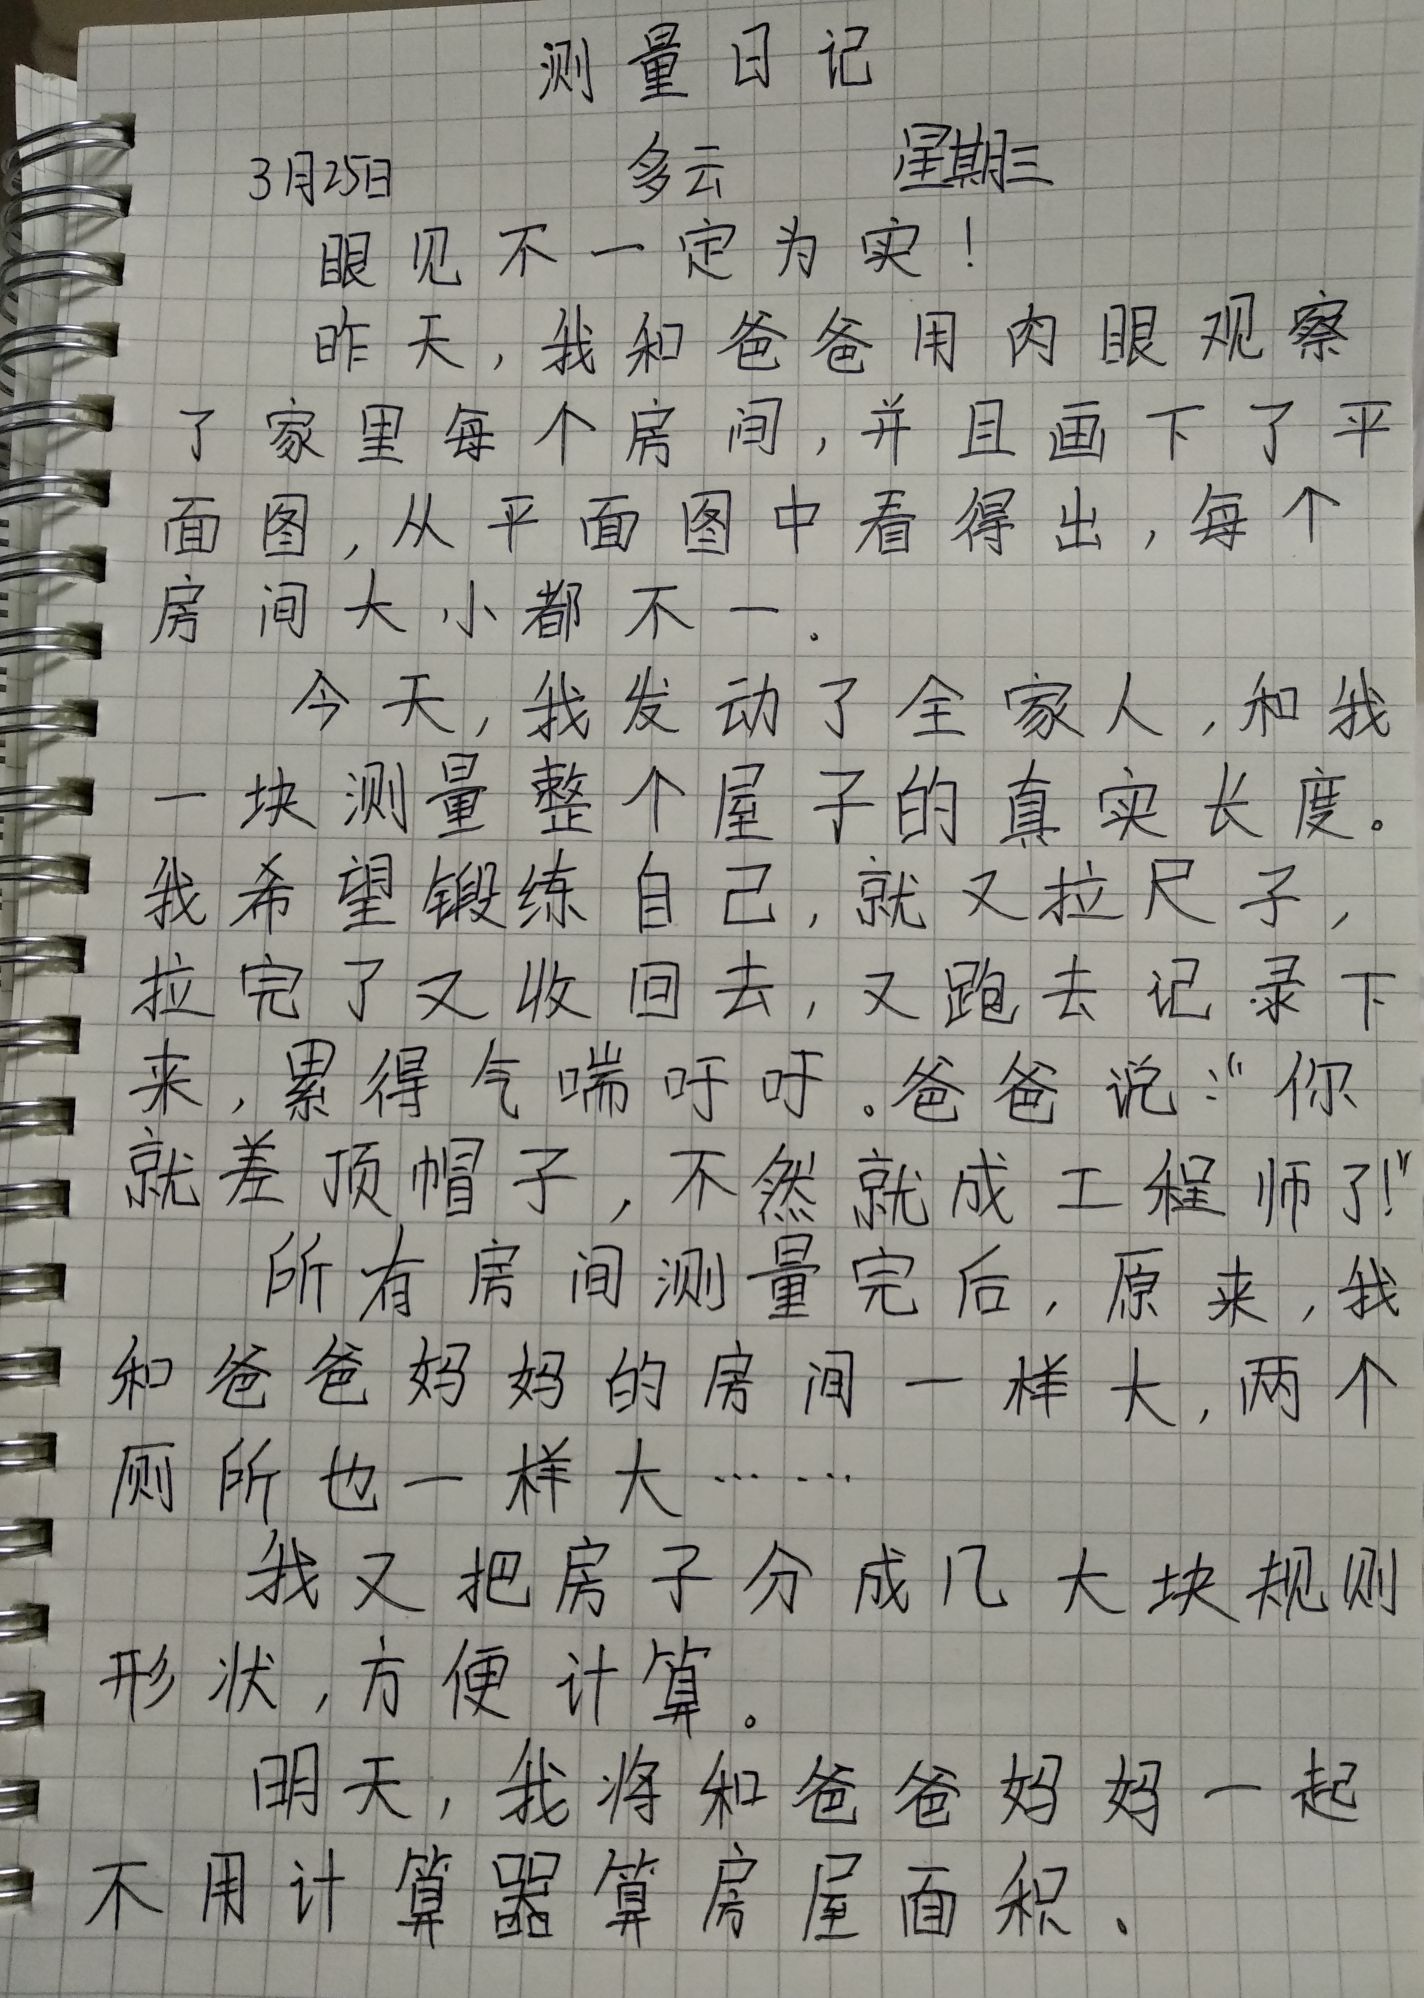 测量日记
3月25日 多云 星期三
眼见不一定为实!
昨天,我和爸爸用肉眼观察
了家里每个房间,并且画下了平
面图,从平面图中看得出,每个
房间大小都不一.
今天,我发动了全家人,和我
一块测量整个屋子的真实长度。
我希望锻练自己,就又拉尺子,
拉完了又收回去,又跑去记录下
来,累得气喘吁吁。爸爸说:“你
就差顶帽子,不然就成工程师了!”
所有房间测量完后,原来,我
和爸爸妈妈的房间一样大,两个
厕所也一样大……
我又把房子分成几大块规则
形状,方便计算。
明天,我将和爸爸妈妈一起
不用计算器算房屋面积.